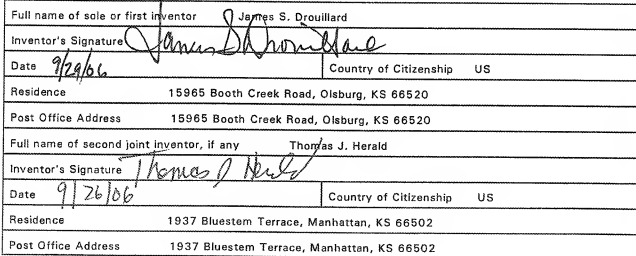 Full name of sole or first inventor James S. Drouillard
Inventor's Signature James S Drouillard
Date 9/29/06 Country of Citizenship US
Residence 15965 Booth Creek Road, Olsburg, KS 66520
Post Office Address 15965 Booth Creek Road, Olsburg, KS 66520
Full name of second joint inventor, if any Thomas J. Herald
Inventor's Signature Thomas J Herald
Date 9/26/06 Country of Citizenship US
Residence 1937 Bluestem Terrace, Manhattan, KS 66502
Post Office Address 1937 Bluestem Terrace, Manhattan, KS 66502